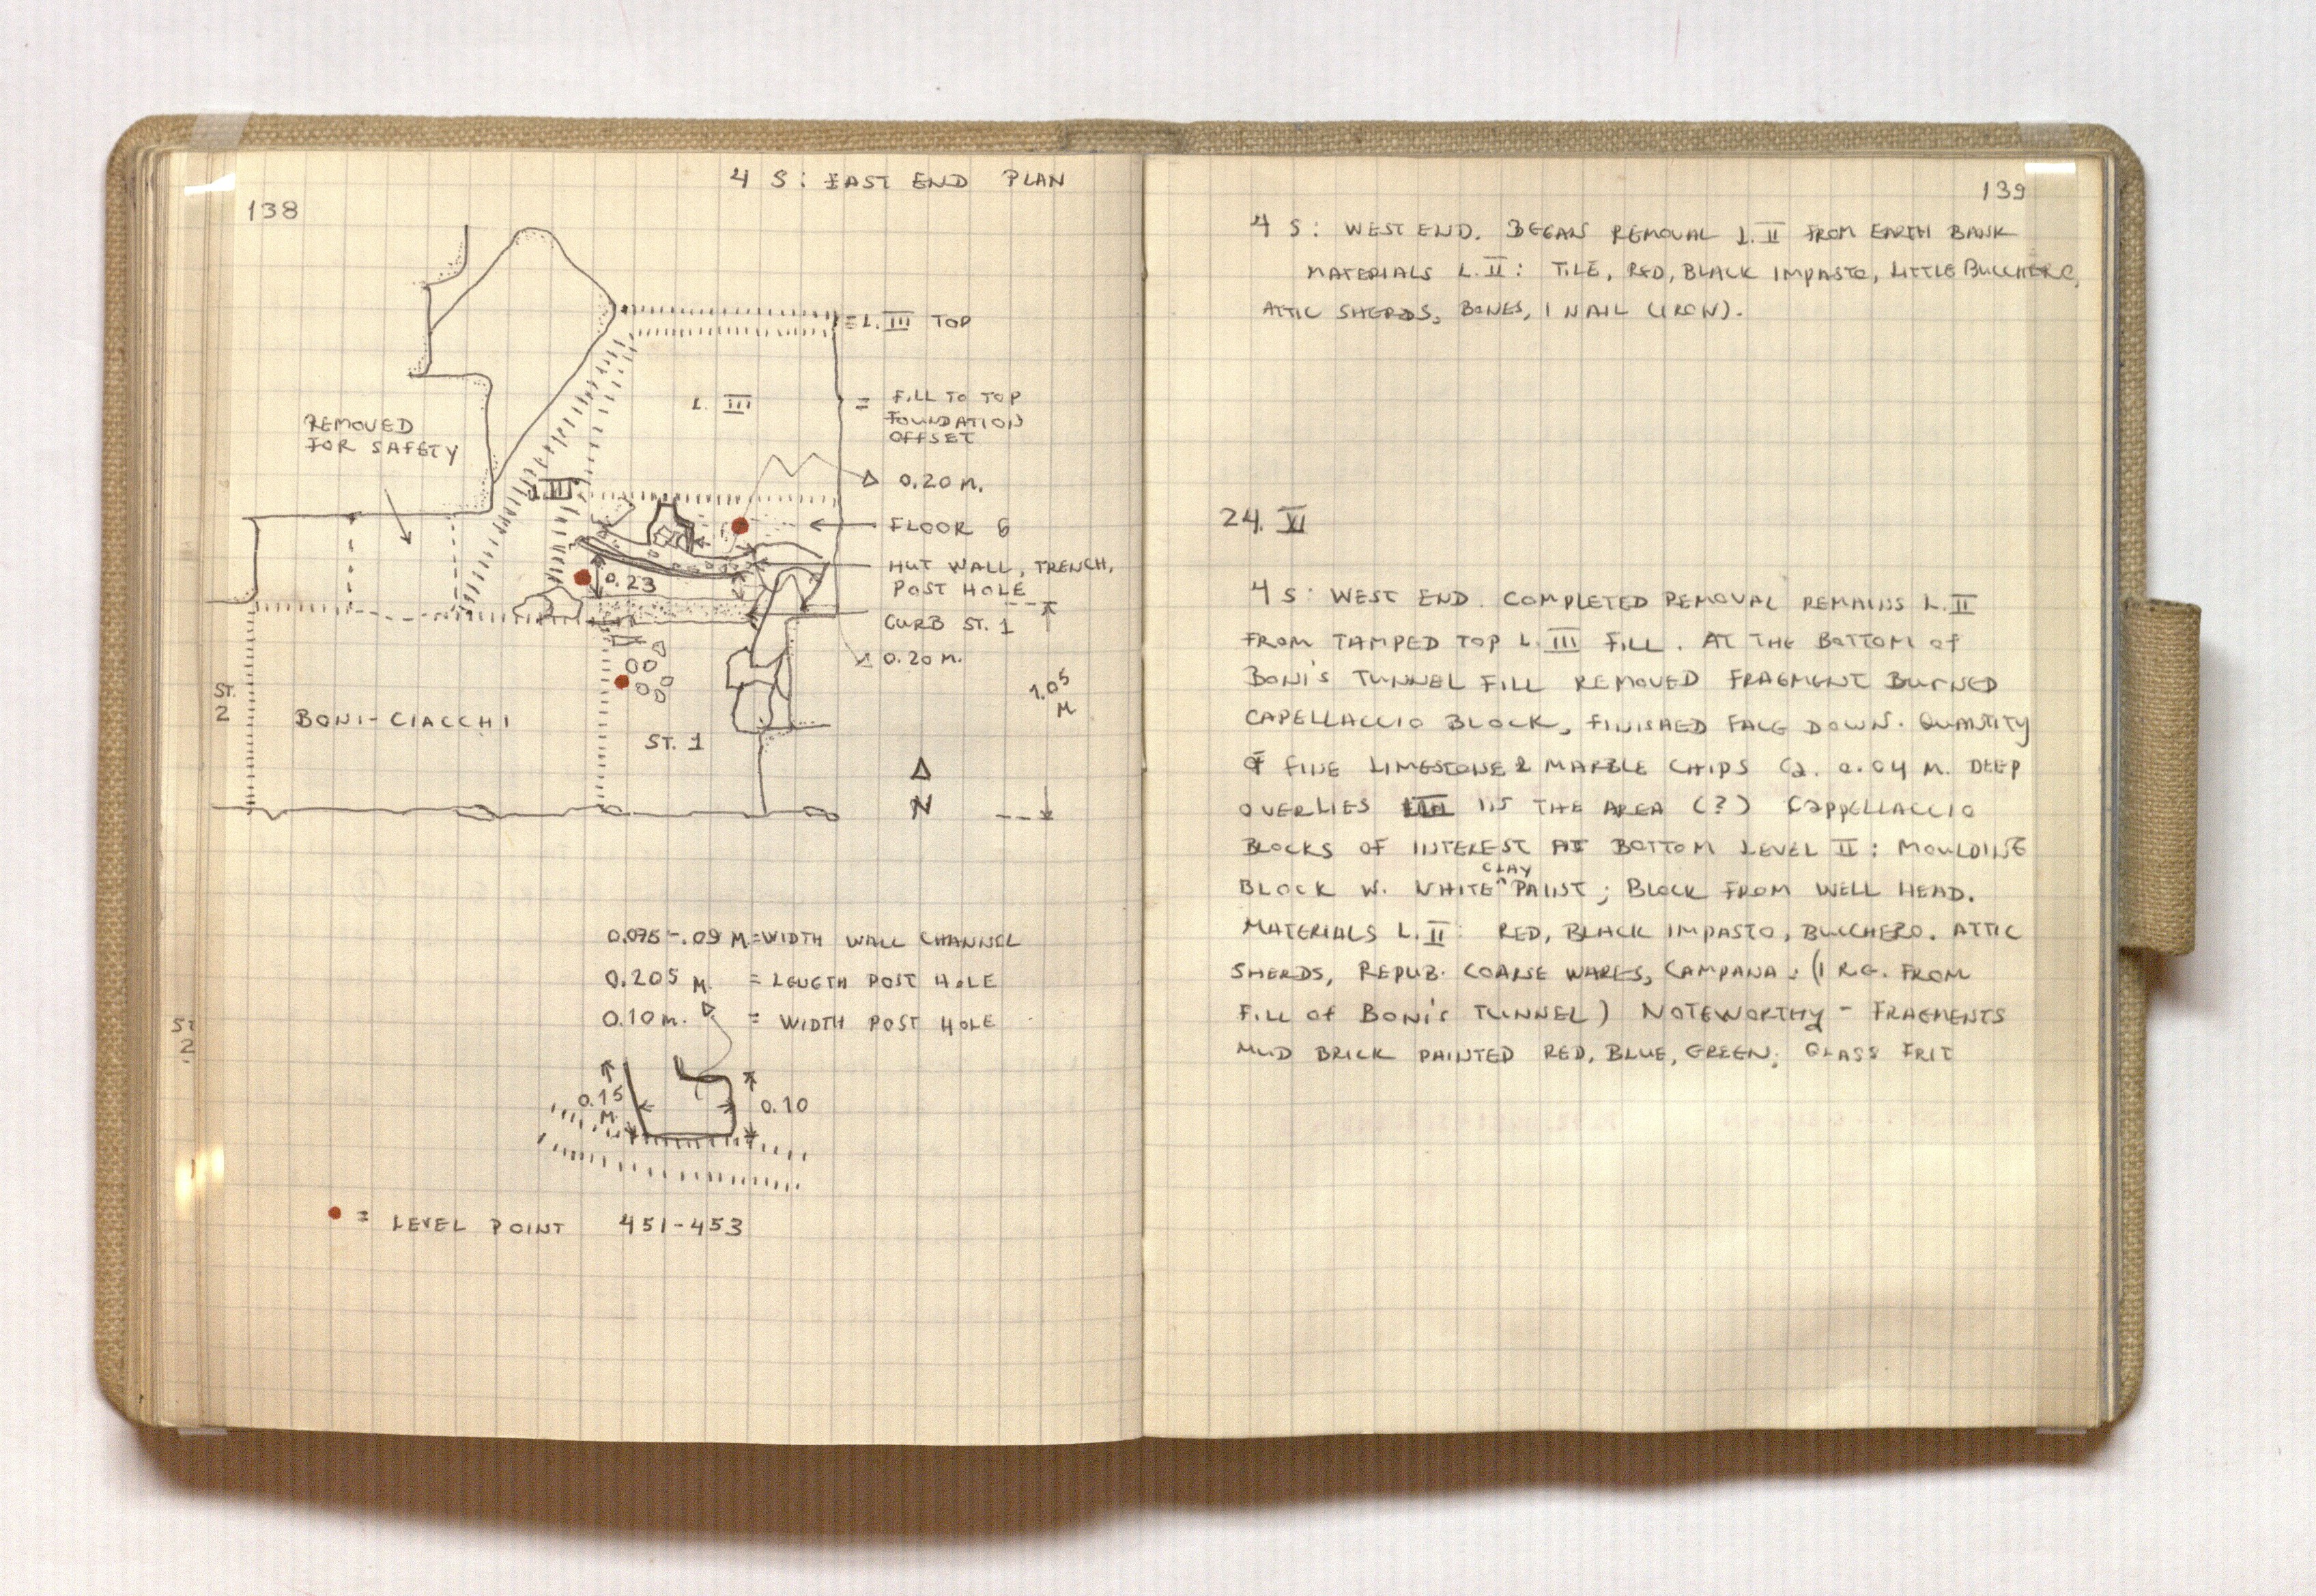 138
4 S: EAST END PLAN
= L. III TOP
L. III
= FILL TO TOP
FOUNDATION
OFFSET
REMOVED
FOR SAFETY
0.20 M.
L III
FLOOR 6
HUT WALL, TRENCH,
POST HOLE
0.23
CURB ST. 1
0.20 M.
1.05
M
ST.
2
BONI-CIACCHI
ST. 1
N
0.075-.09 M = WIDTH WALL CHANNEL
0.205 M. = LENGTH POST HOLE
0.10 M. = WIDTH POST HOLE
ST
2
0.15
M.
0.10
= LEVEL POINT 451-453
139
4 S: WEST END. BEGAN REMOVAL L. II FROM EARTH BANK
MATERIALS L. II: TILE, RED, BLACK IMPASTO, LITTLE BUCCHERO,
ATTIC SHERDS, BONES, 1 NAIL (IRON).
24. VI
4 S: WEST END. COMPLETED REMOVAL REMAINS L. II
FROM TAMPED TOP L. III FILL. AT THE BOTTOM OF
BONI'S TUNNEL FILL REMOVED FRAGMENT BURNED
CAPELLACCIO BLOCK, FINISHED FACE DOWN. QUANTITY
OF FINE LIMESTONE & MARBLE CHIPS CA. 0.04 M. DEEP
OVERLIES LIII IN THE AREA (?) CAPPELLACCIO
BLOCKS OF INTEREST AT BOTTOM LEVEL II: MOULDING
BLOCK W. WHITE CLAY PAINT; BLOCK FROM WELL HEAD.
MATERIALS L. II: RED, BLACK IMPASTO, BUCCHERO. ATTIC
SHERDS, REPUB. COARSE WARES, CAMPANA; (1 R.G. FROM
FILL OF BONI'S TUNNEL) NOTEWORTHY - FRAGMENTS
MUD BRICK PAINTED RED, BLUE, GREEN; GLASS FRIT